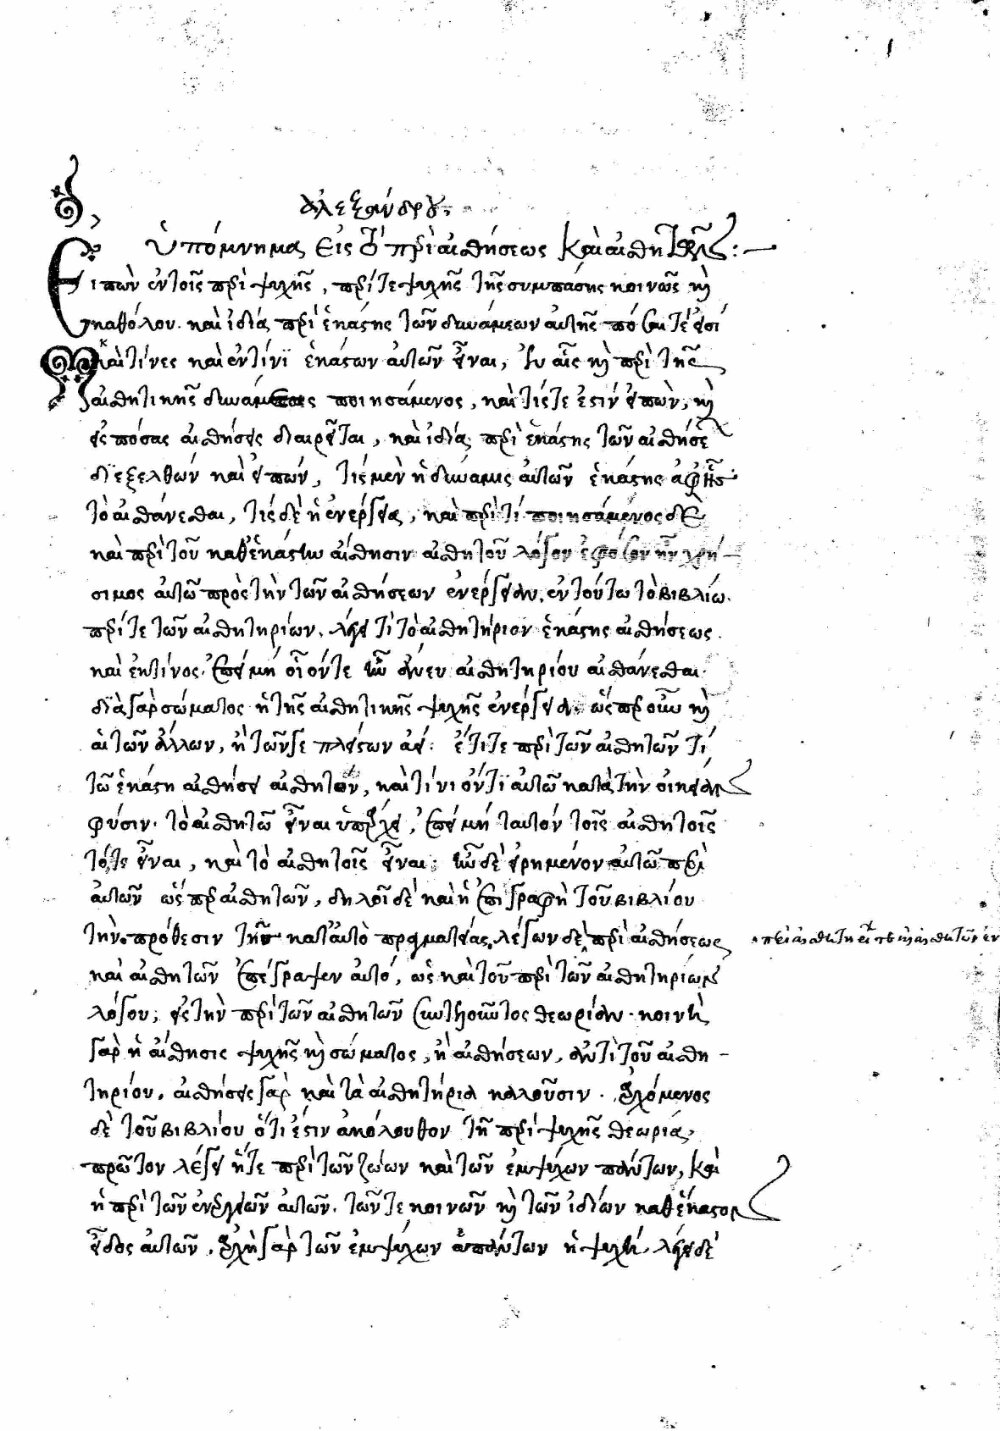 ἀλεξάνδρου,
ὑπόμνημα εἰς τὸ περὶ αἰσθήσεως καὶ αἰσθητῶν:
Εἰπὼν ἐν τοῖς περὶ ψυχῆς, περί τε ψυχῆς τῆς συμπάσης κοινῶς καὶ
καθόλου. καὶ ἰδίᾳ περὶ ἑκάστης τῶν δυνάμεων αὐτῆς πόσαι τέ εἰσι
καὶ τίνες καὶ ἐν τίνι ἑκάστων αὐτῶν εἶναι, ἐν αἷς καὶ περὶ τῆς
αἰσθητικῆς δυνάμεως ποιησάμενος, καὶ τίς τέ ἐστιν εἰπὼν, καὶ
εἰς πόσας αἰσθήσεις διαιρεῖται, καὶ ἰδίᾳ περὶ ἑκάστης τῶν αἰσθήσε
διεξελθών καὶ εἰπών, τίς μὲν ἡ δύναμις αὐτῶν ἑκάστης
τὸ αἰσθάνεσθαι, τίς δὲ ἡ ἐνέργεια, καὶ περὶ τί ποιησάμενος δὲ
καὶ περὶ τοῦ καθ' ἑκάστην αἴσθησιν αἰσθητοῦ λόγον ἐφ' ὅσον ἦν χρή-
σιμος αὐτῶ πρὸς τὴν τῶν αἰσθήσεων ἐνέργειαν. ἐν τούτω τὸ βιβλίω.
περί τε τῶν αἰσθητηρίων. λέγει τί τὸ αἰσθητήριον ἑκάστης αἰσθήσεως.
καὶ ἐκ τίνος. ἐπεὶ μή οἷόν τε ἦν ἄνευ αἰσθητηρίου αἰσθάνεσθαι.
διὰ γὰρ σώματος ἡ τῆς αἰσθητικῆς ψυχῆς ἐνέργεια. ὥσπερ οὖν καὶ
αἱ τῶν ἄλλων, ἢ τῶν γε πλείστων ἀεί. ἔτι τε περὶ τῶν αἰσθητῶν τί
τῶ ἑκάστη αἰσθήσει αἰσθητόν, καὶ τίνι ὄντι αὐτῶ κατὰ τὴν οἰκείαν
φύσιν. τὸ αἰσθητῶ εἶναι ὑπάρχει, ἐπεὶ μή ταυτόν τοῖς αἰσθητοῖς
τό τε εἶναι, καὶ τὸ αἰσθητοῖς εἶναι. ἦν δὲ εἰρημένον αὐτῶ περὶ
αὐτῶν ὥσπερ αἰσθητῶν, δηλοῖ δὲ καὶ ἡ ἐπιγραφὴ τοῦ βιβλίου
τὴν πρόθεσιν τῆς κατ' αὐτὸ πραγματείας, λέγων δὲ περὶ αἰσθήσεως
καὶ αἰσθητῶν ἐπέγραψεν αὐτό, ὡς καὶ τοῦ περὶ τῶν αἰσθητηρίων
λόγου, εἰς τὴν περὶ τῶν αἰσθητῶν συντείνοντος θεωρίαν. κοινὴ
γὰρ ἡ αἴσθησις ψυχῆς καὶ σώματος, ἢ αἰσθήσεων, ἀντὶ τοῦ αἰσθη-
τηρίου. αἰσθήσεις γὰρ καὶ τὰ αἰσθητήρια καλοῦσιν. ἀρχόμενος
δὲ τοῦ βιβλίου ὅτι ἐστὶν ἀκόλουθον τῆ περὶ ψυχῆς θεωρία,
πρῶτον λέγει ἥ τε περὶ τῶν ζώων καὶ τῶν ἐμψύχων πάντων, καὶ
ἡ περὶ τῶν ἐνεργειῶν αὐτῶν. τῶν τε κοινῶν καὶ τῶν ἰδίων καθ' ἕκαστον
εἶδος αὐτῶν. ἀρχὴ γὰρ τῶν ἐμψύχων ἁπάντων ἡ ψυχή. λέγει δὲ